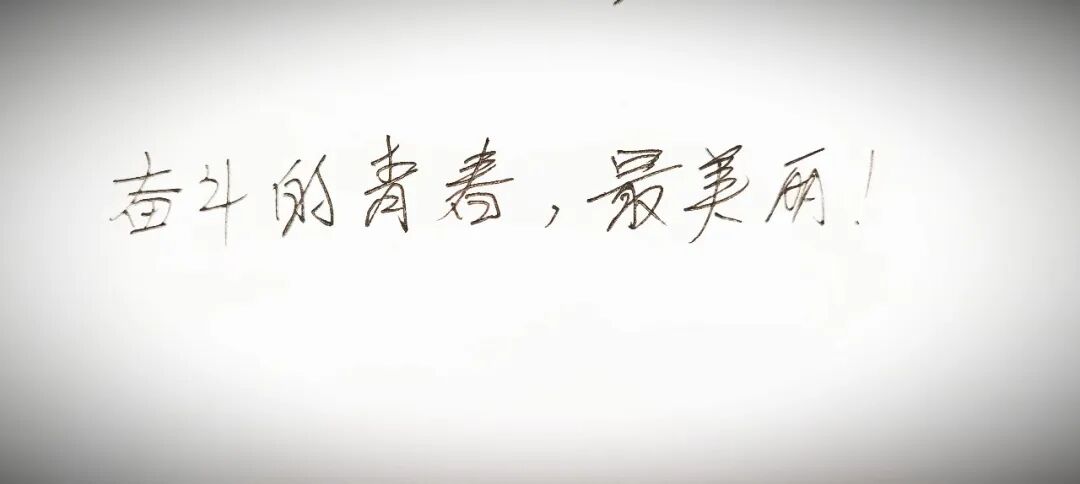 奋斗的青春，最美丽！